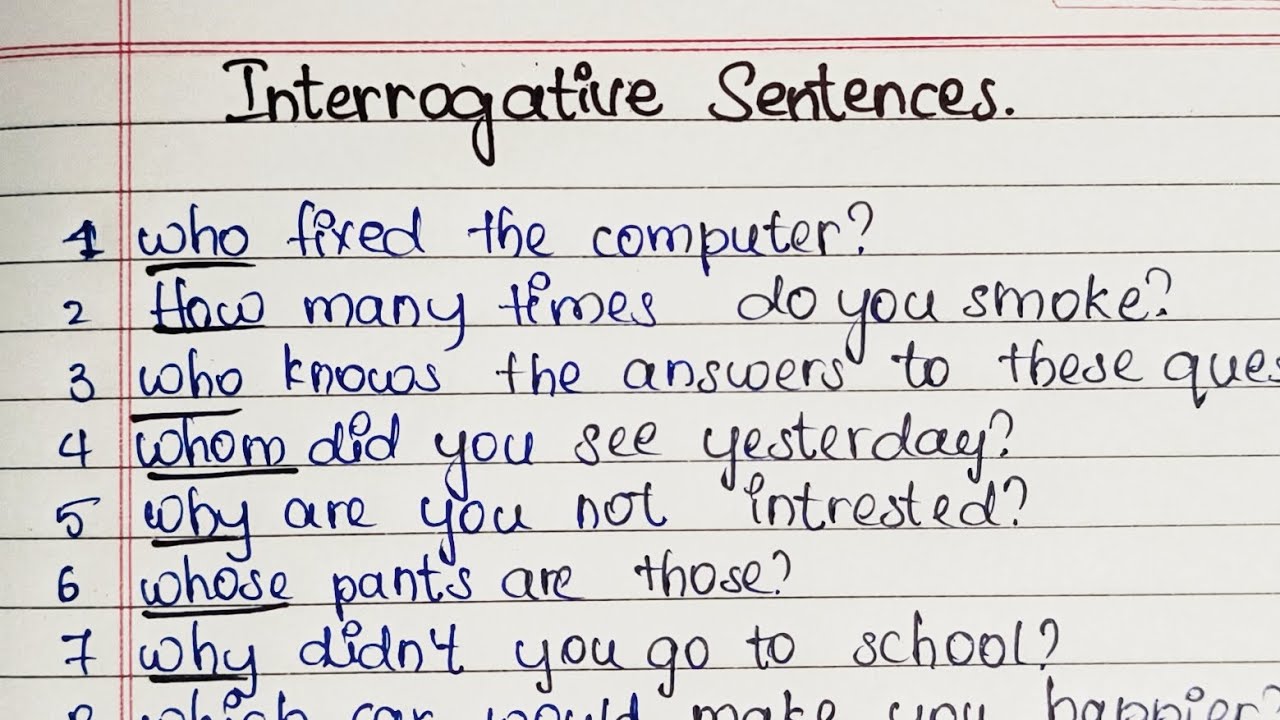 Interrogative Sentences.
1 who fixed the computer?
2 How many times do you smoke?
3 who knows the answers to these ques
4 whom did you see yesterday?
5 why are you not intrested?
6 whose pants are those?
7 why didn't you go to school?
8 which car would make you happier?